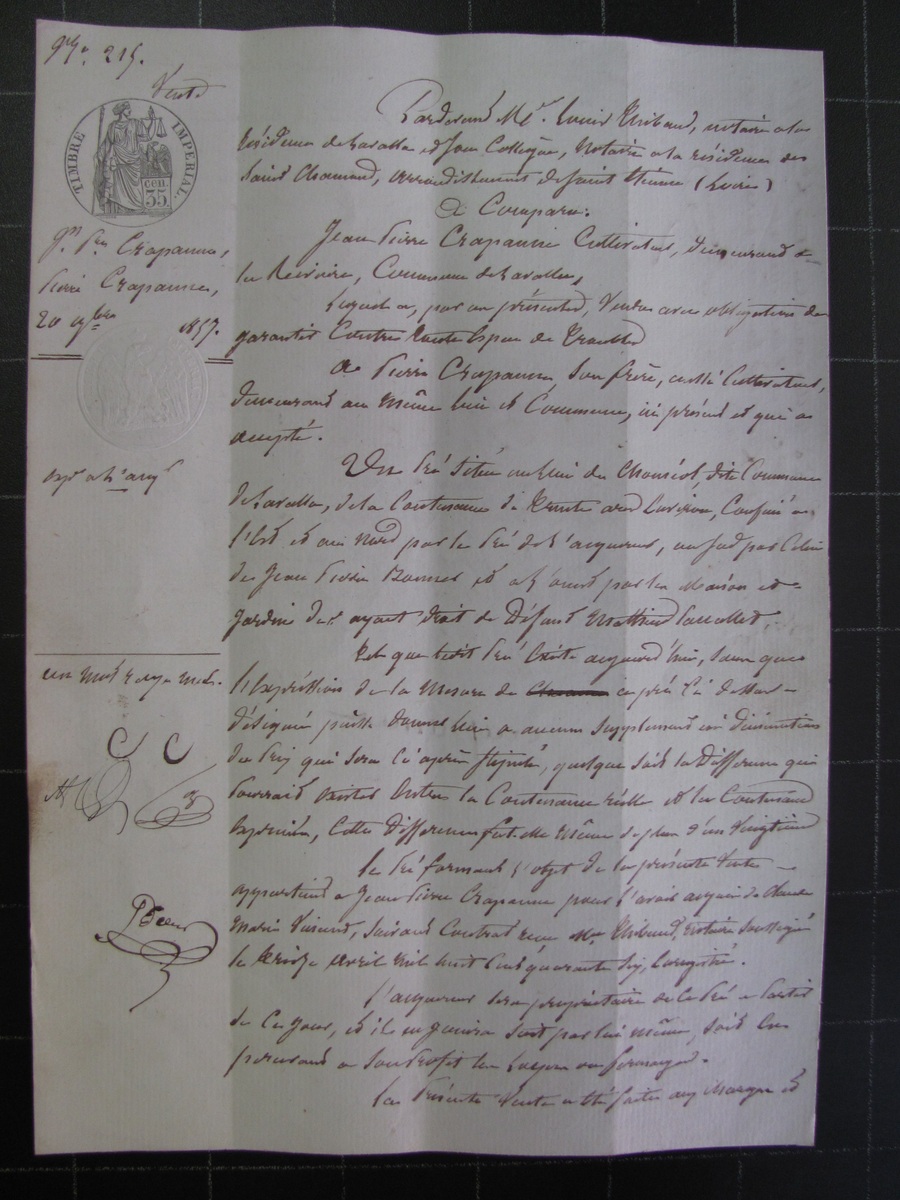 215.
Vente
TIMBRE IMPERIAL.
35 cen.
Jn Pre Crapanne,
Pierre Crapanne,
20 9bre 1857.
un mot rayé nul.
C C
Pardevant Me Louis Thibaud, notaire à la
résidence de Lavalla et Jean Collogne, Notaire à la résidence de
Saint Chamond, arrondissement de Saint Etienne (Loire)
A Comparu:
Jean Pierre Crapanne Cultivateur, demeurant à
la Rivoire, Commune de Lavalla,
Lequel a, par ces présentes, Vendu avec obligation de
garantir Contre toute Espèce de Troubles
A Pierre Crapanne, son frère, aussi Cultivateur,
demeurant au même lieu et Commune, ici présent et qui a
accepté.
Un Pré situé au lieu du dite Commune
de Lavalla, de la Contenance de Trente ares Environ, Confiné à
l'Est et au Nord par le Pré de l'acquereur, au sud par Celui
de Jean Pierre et à l'ouest par la Maison et
Jardin des ayant droit de Défunt Mathieu
Tel que ledit Pré Existe aujourd'hui, sans que
l'Expression de la Mesure de ci dessus
désignée puisse donner lieu à aucun Supplément ni diminution
du Prix qui sera ci après stipulé, quelque soit la Différence qui
pourrait exister Entre la Contenance réelle et la Contenance
exprimée, Cette Différence fut elle même de plus d'un Vingtième
Le Pré formant l'objet de la présente Vente
appartient à Jean Pierre Crapanne pour l'avoir acquis de Claude
Marie suivant Contrat reçu Me Thibaud, notaire soussigné
le Treize avril mil huit Cent quarante six, Enregistré.
L'acquereur sera propriétaire de Ce Pré à Partir
de Ce Jour, et il en Jouira soit par lui même, soit En
percevant à Son Profit les Loyers ou fermages.
La Présente Vente a été faite aux Charges et